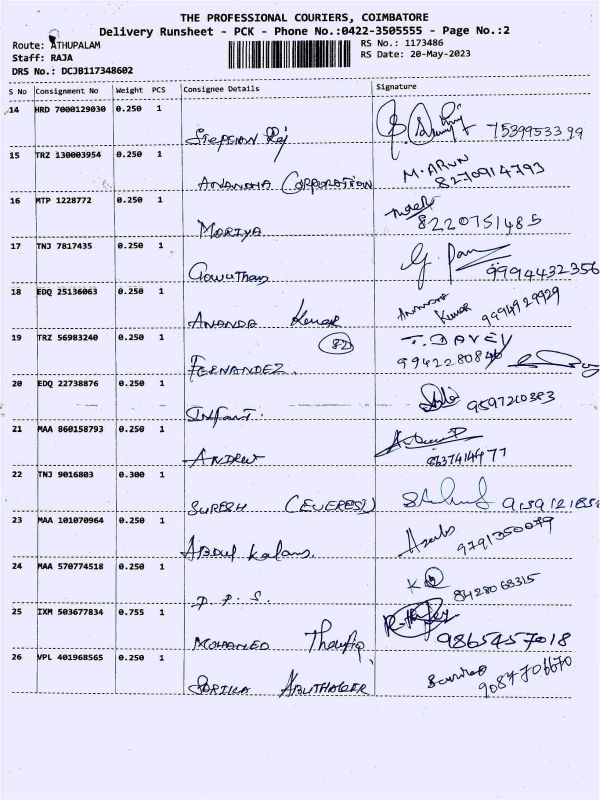 THE PROFESSIONAL COURIERS, COIMBATORE
Delivery Runsheet - PCK - Phone No.:0422-3505555 - Page No.:2
Route: ATHUPALAM RS No.: 1173486
Staff: RAJA RS Date: 20-May-2023
DRS No.: DCJB117348602
S No Consignment No Weight PCS Consignee Details Signature
14 HRD 7000129030 0.250 1
Stephen Raj 7539953399
15 TRZ 130003954 0.250 1 M. ARUN
ANANDHA CORPORATION 8270914793
16 MTP 1228772 0.250 1
MARIYA 8220751485
17 TNJ 7817435 0.250 1
Gowutham 9994432356
18 EDQ 25136063 0.250 1
ANANDA Kumar Kumar 9994929929
82
19 TRZ 56983240 0.250 1 T. DAVEY
FERNANDEZ. 9942280840
20 EDQ 22738876 0.250 1
Infant. 9597210383
21 MAA 860158793 0.250 1
ANDREW 6374144477
22 TNJ 9016803 0.300 1
SURESH (EVEREST)
23 MAA 101070964 0.250 1
ABDUL Kalam. 9791350079
24 MAA 570774518 0.250 1
D. P. S. 8428068315
25 IXM 503677834 0.755 1
MOHAMED Thoufiq, 9865457018
26 VPL 401968565 0.250 1
ABUTHAGEER 9087706670